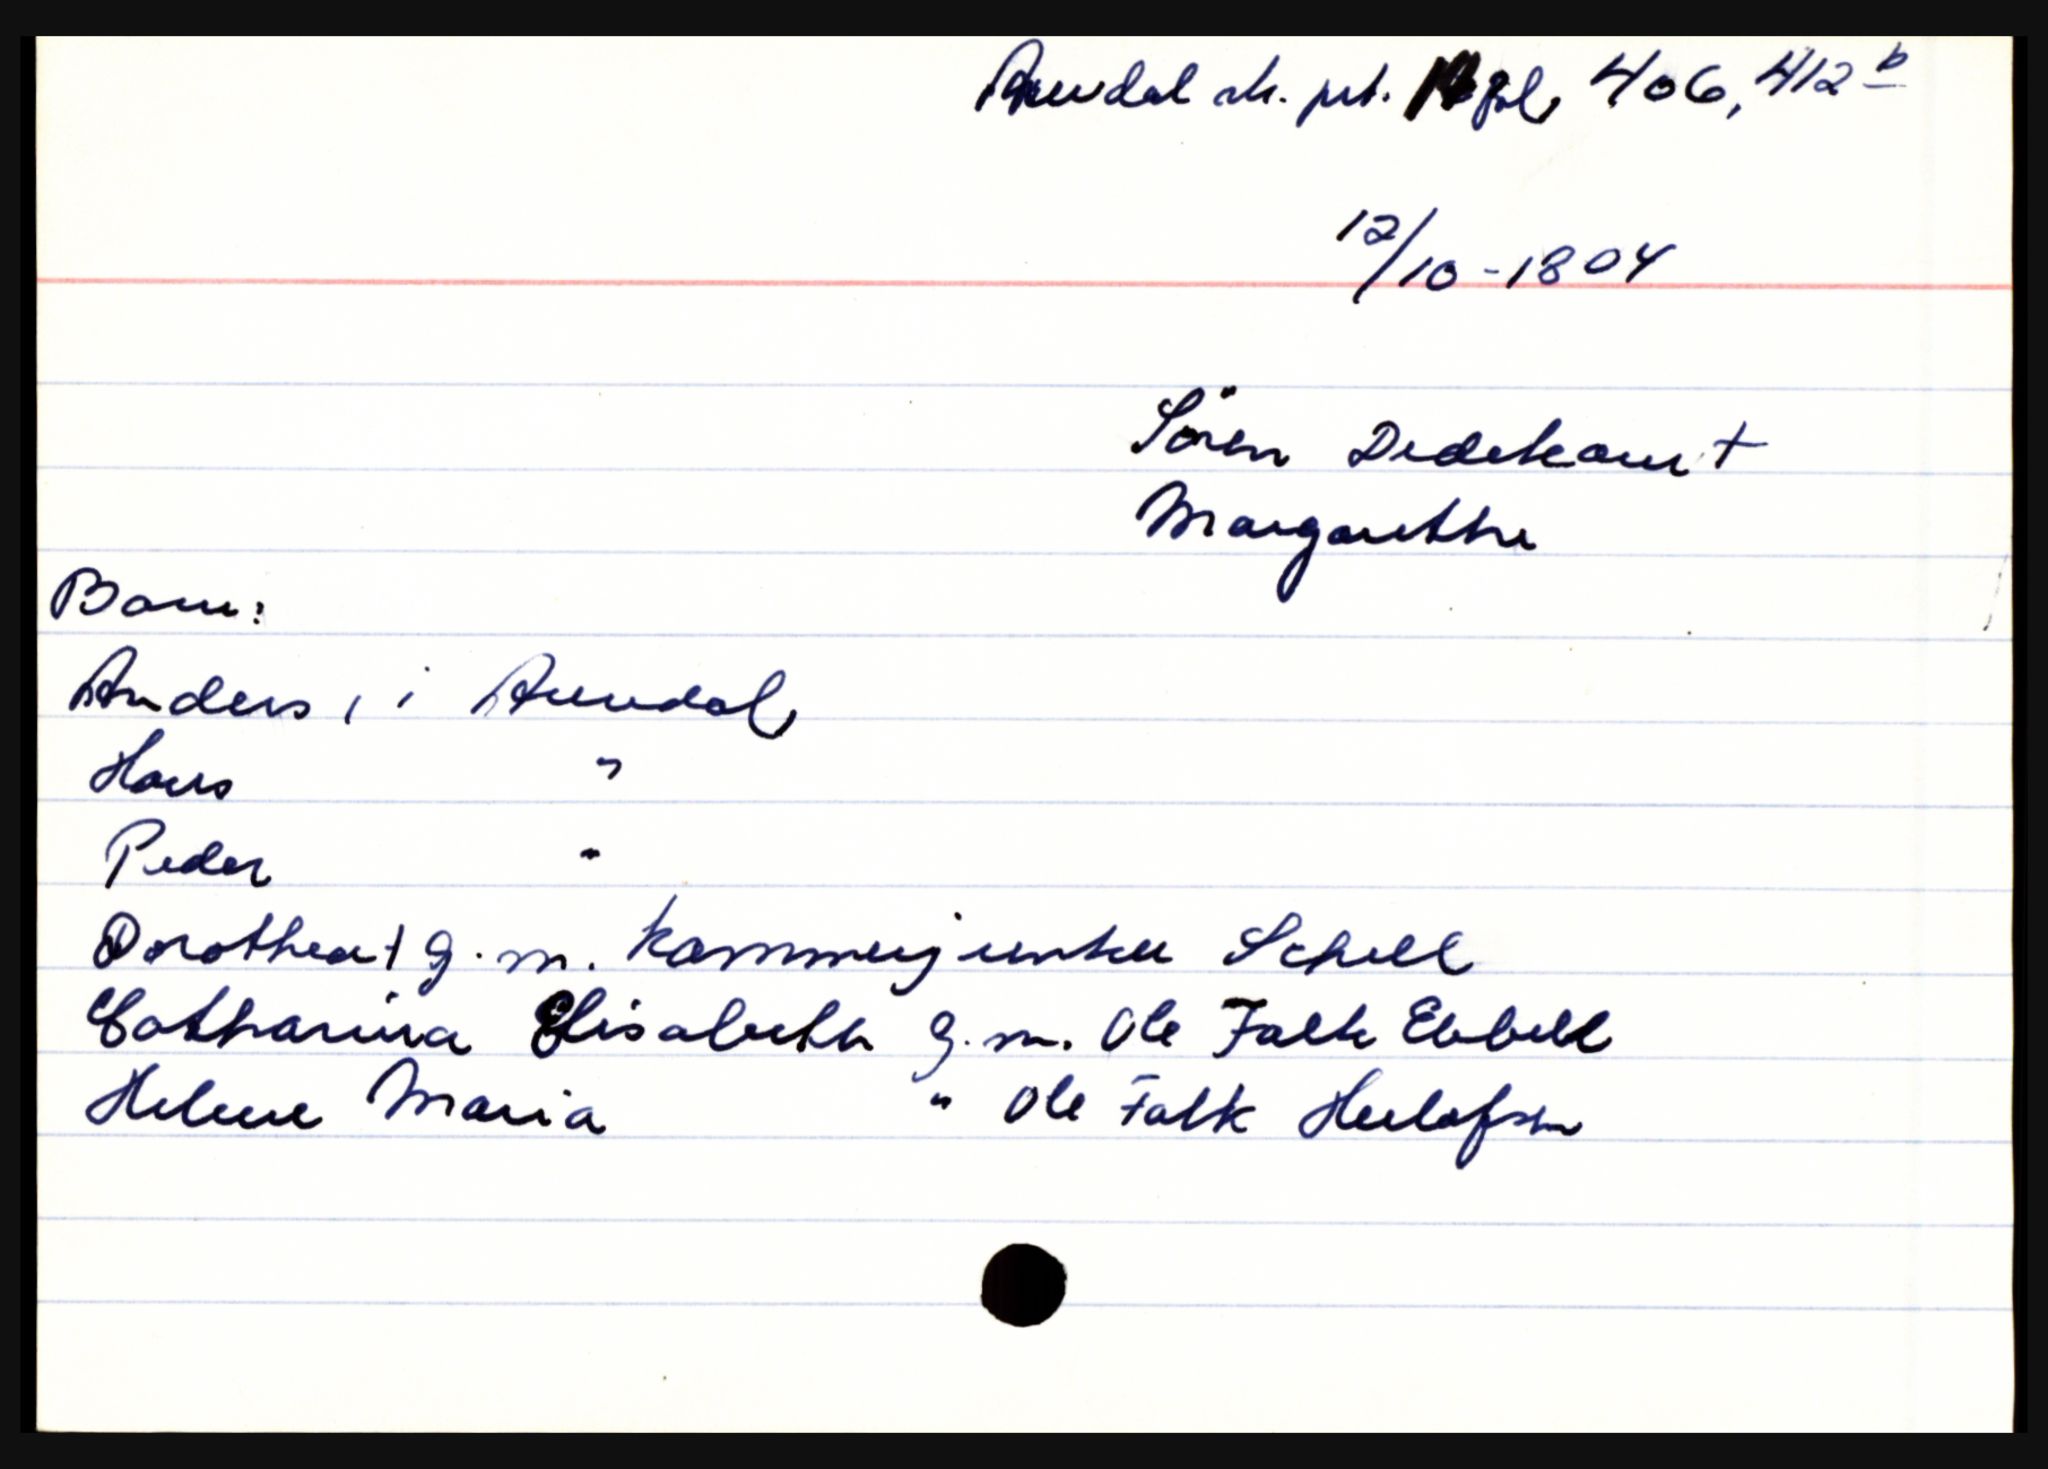 Arendal sk. prt. fol, 406, 412 b
12/10-1804
Sören Dedekam +
Margarethe
Barn:
Anders, i Arendal,
Hans "
Peder "
Dorothea + g.m. kammerjunker Schell
Catharina Elisabeth g.m. Ole Falk Ebbell
Helene Maria " Ole Falk Herlofsen